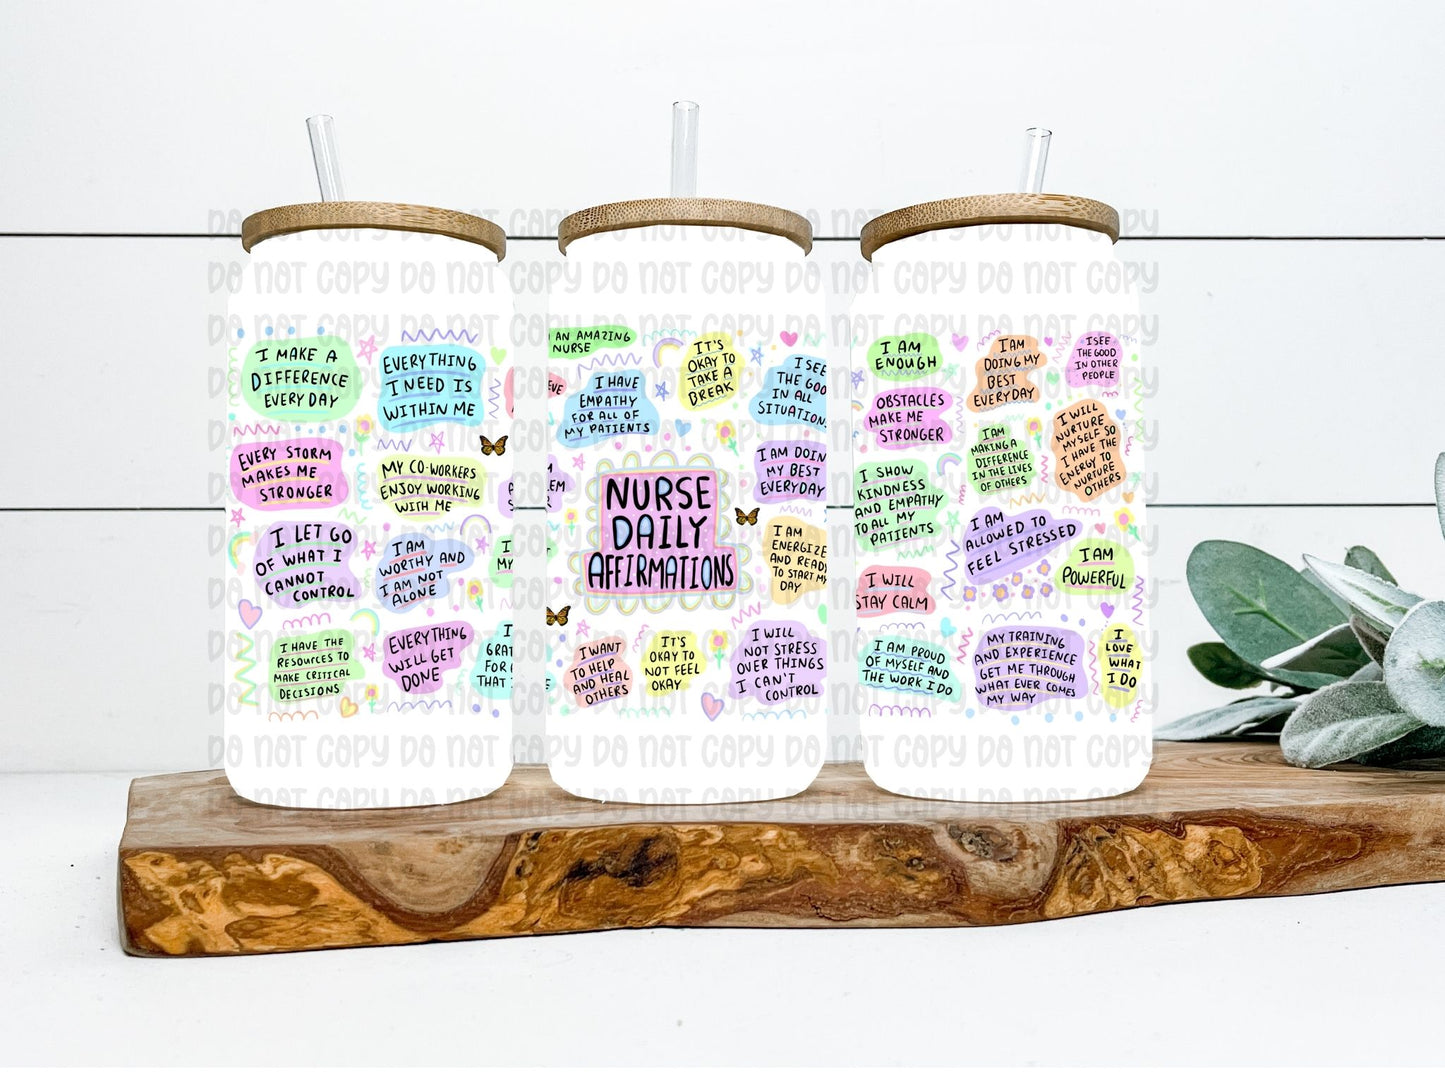 DO NOT COPY DO NOT COPY DO NOT COPY DO NOT COPY DO NOT COPY
I MAKE A
DIFFERENCE
EVERY DAY
EVERYTHING
I NEED IS
WITHIN ME
EVERY STORM
MAKES ME
STRONGER
MY CO-WORKERS
ENJOY WORKING
WITH ME
I LET GO
OF WHAT I
CANNOT
CONTROL
I AM
WORTHY AND
I AM NOT
ALONE
I HAVE THE
RESOURCES TO
MAKE CRITICAL
DECISIONS
EVERYTHING
WILL GET
DONE
AN AMAZING
NURSE
I HAVE
EMPATHY
FOR ALL OF
MY PATIENTS
IT'S
OKAY TO
TAKE A
BREAK
I SEE
THE GOO
IN ALL
SITUATION
NURSE
DAILY
AFFIRMATIONS
I AM DOIN
MY BEST
EVERYDAY
I AM
ENERGIZE
AND READY
TO START MY
DAY
I WANT
TO HELP
AND HEAL
OTHERS
IT'S
OKAY TO
NOT FEEL
OKAY
I WILL
NOT STRESS
OVER THINGS
I CAN'T
CONTROL
I AM
ENOUGH
I AM
DOING MY
BEST
EVERYDAY
I SEE
THE GOOD
IN OTHER
PEOPLE
OBSTACLES
MAKE ME
STRONGER
I AM
MAKING A
DIFFERENCE
IN THE LIVES
OF OTHERS
I WILL
NURTURE
MYSELF SO
I HAVE THE
ENERGY TO
NURTURE
OTHERS
I SHOW
KINDNESS
AND EMPATHY
TO ALL MY
PATIENTS
I AM
ALLOWED TO
FEEL STRESSED
I AM
POWERFUL
I WILL
STAY CALM
I AM PROUD
OF MYSELF AND
THE WORK I DO
MY TRAINING
AND EXPERIENCE
GET ME THROUGH
WHAT EVER COMES
MY WAY
I
LOVE
WHAT
I DO